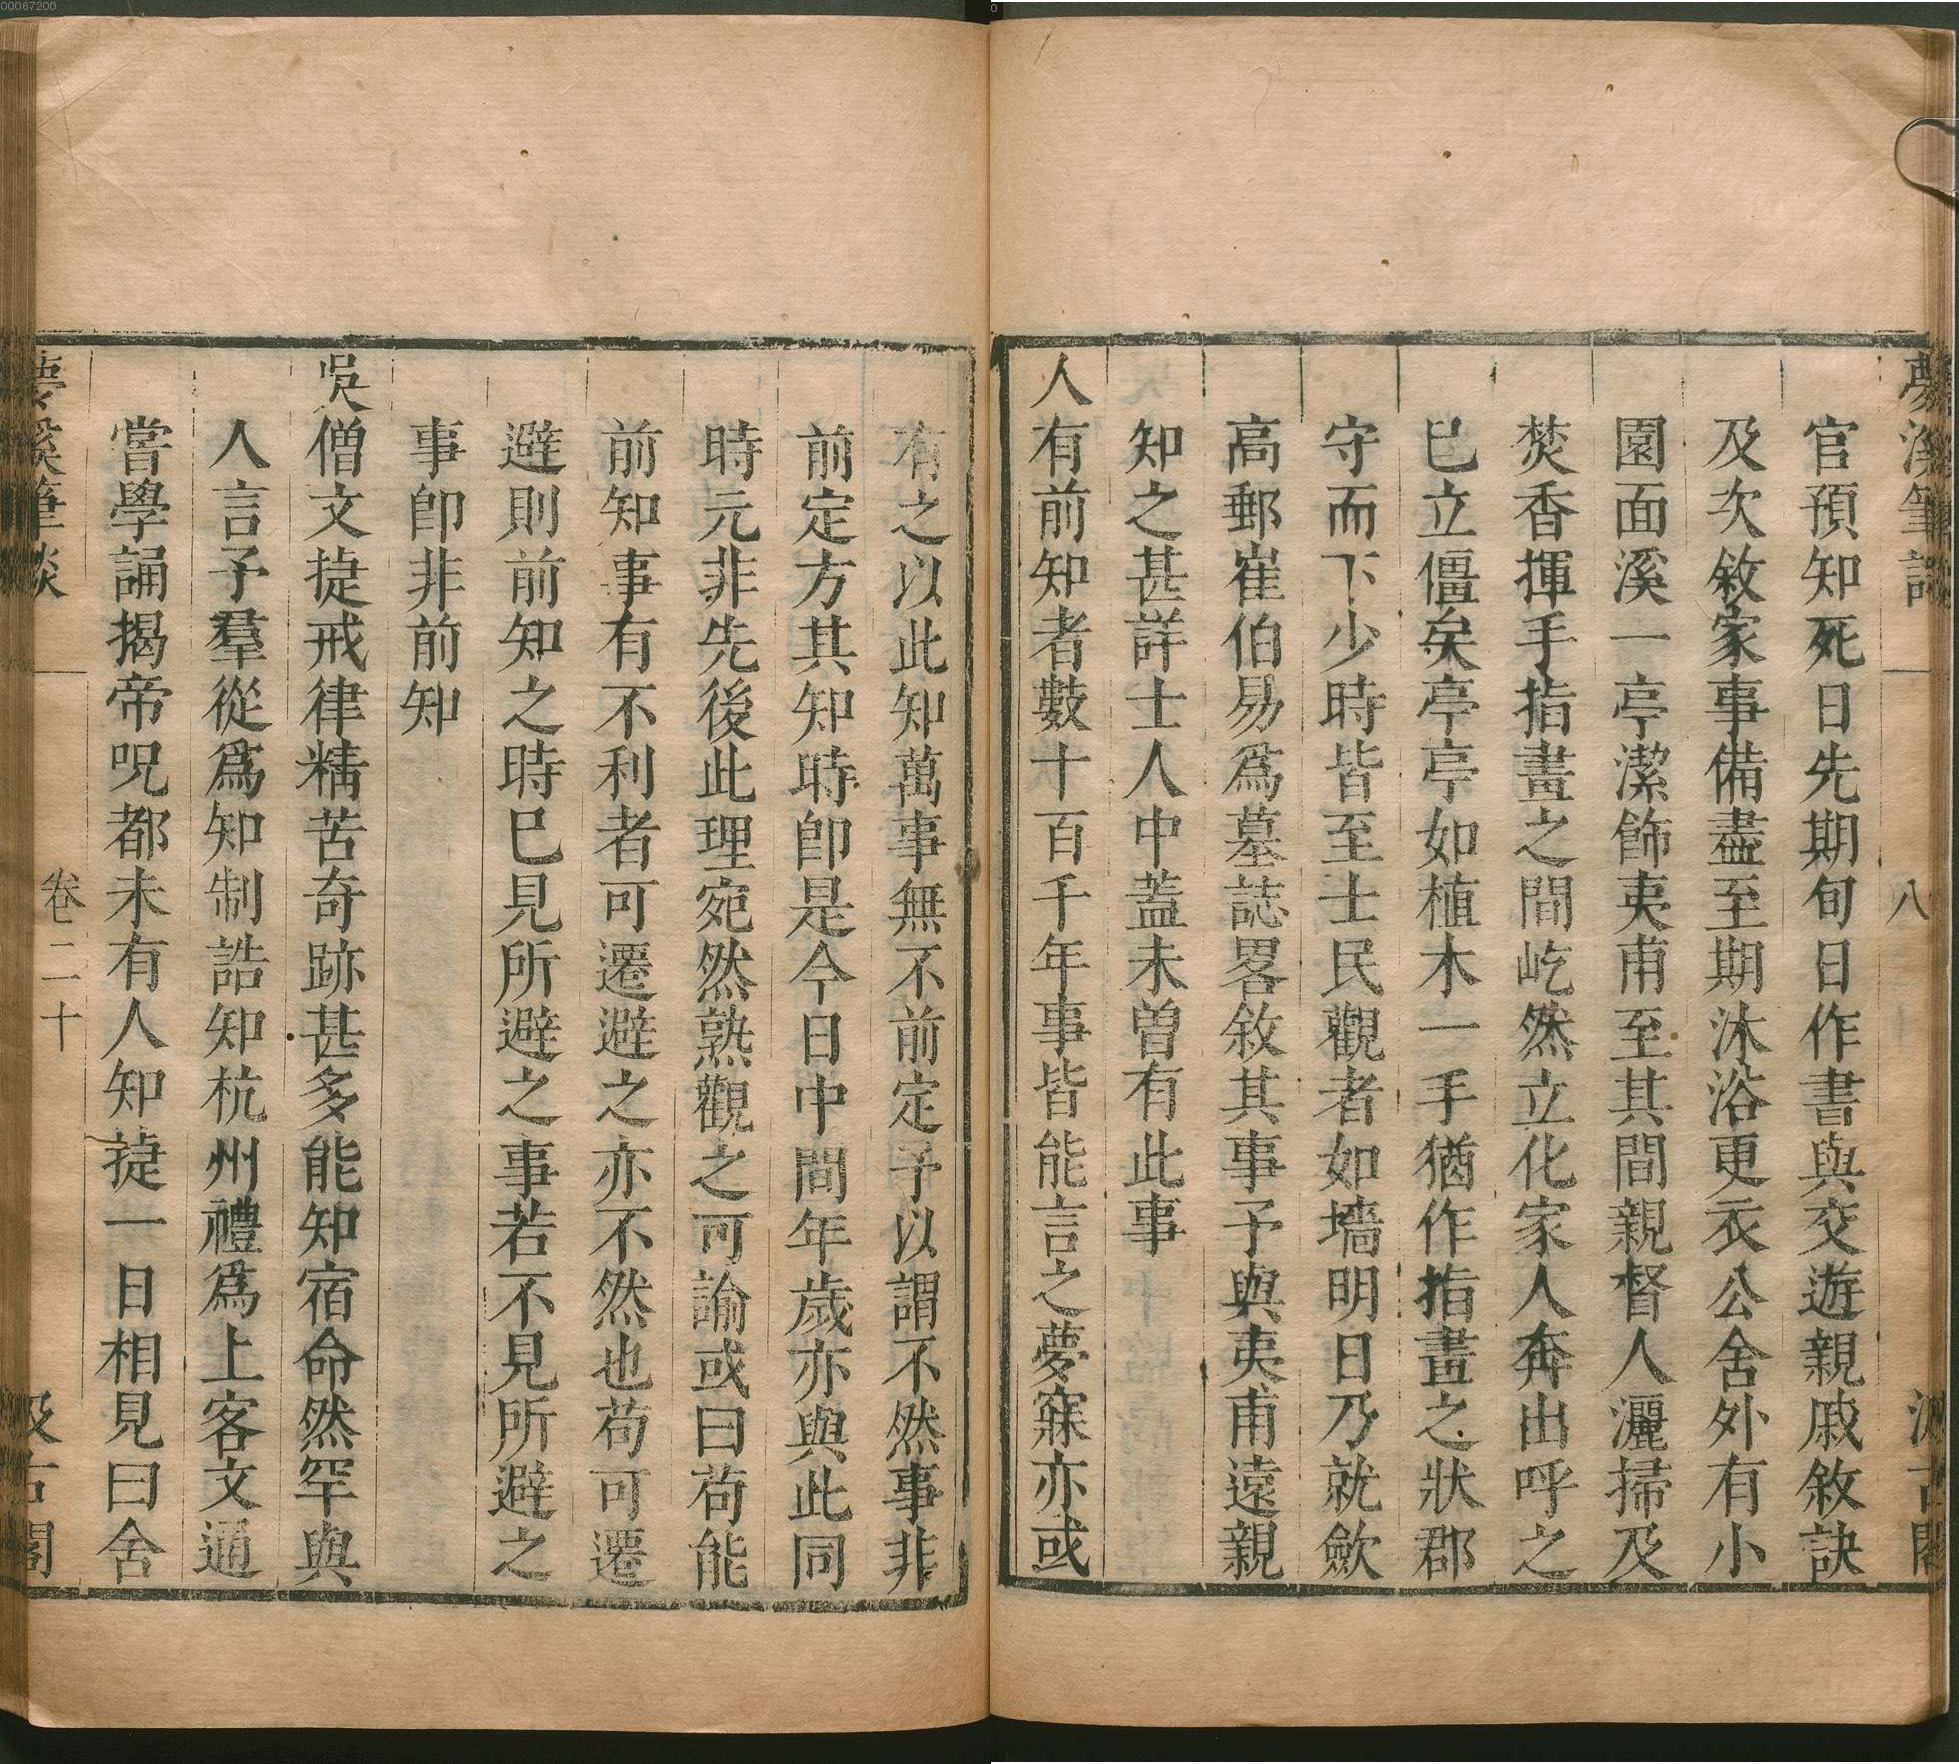 00067200
夢溪筆談
八
汲古閣
官預知死日先期旬日作書與交遊親戚敘訣
及次敘家事備盡至期沐浴更衣公舍外有小
園面溪一亭潔飾夷甫至其間親督人灑掃及
焚香揮手指畫之間屹然立化家人奔出呼之
已立僵矣亭亭如植木一手猶作指畫之狀郡
守而下少時皆至士民觀者如墻明日乃就歛
高郵崔伯易爲墓誌畧敘其事予與夷甫遠親
知之甚詳士人中蓋未曾有此事
人有前知者數十百千年事皆能言之夢寐亦或
有之以此知萬事無不前定予以謂不然事非
前定方其知時卽是今日中間年歲亦與此同
時元非先後此理宛然熟觀之可諭或曰苟能
前知事有不利者可遷避之亦不然也苟可遷
避則前知之時巳見所避之事若不見所避之
事卽非前知
吳僧文㨗戒律精苦奇跡甚多能知宿命然罕與
人言予羣從爲知制誥知杭州禮爲上客文通
嘗學誦揭帝呪都未有人知㨗一日相見曰舍
夢溪筆談
卷二十
汲古閣